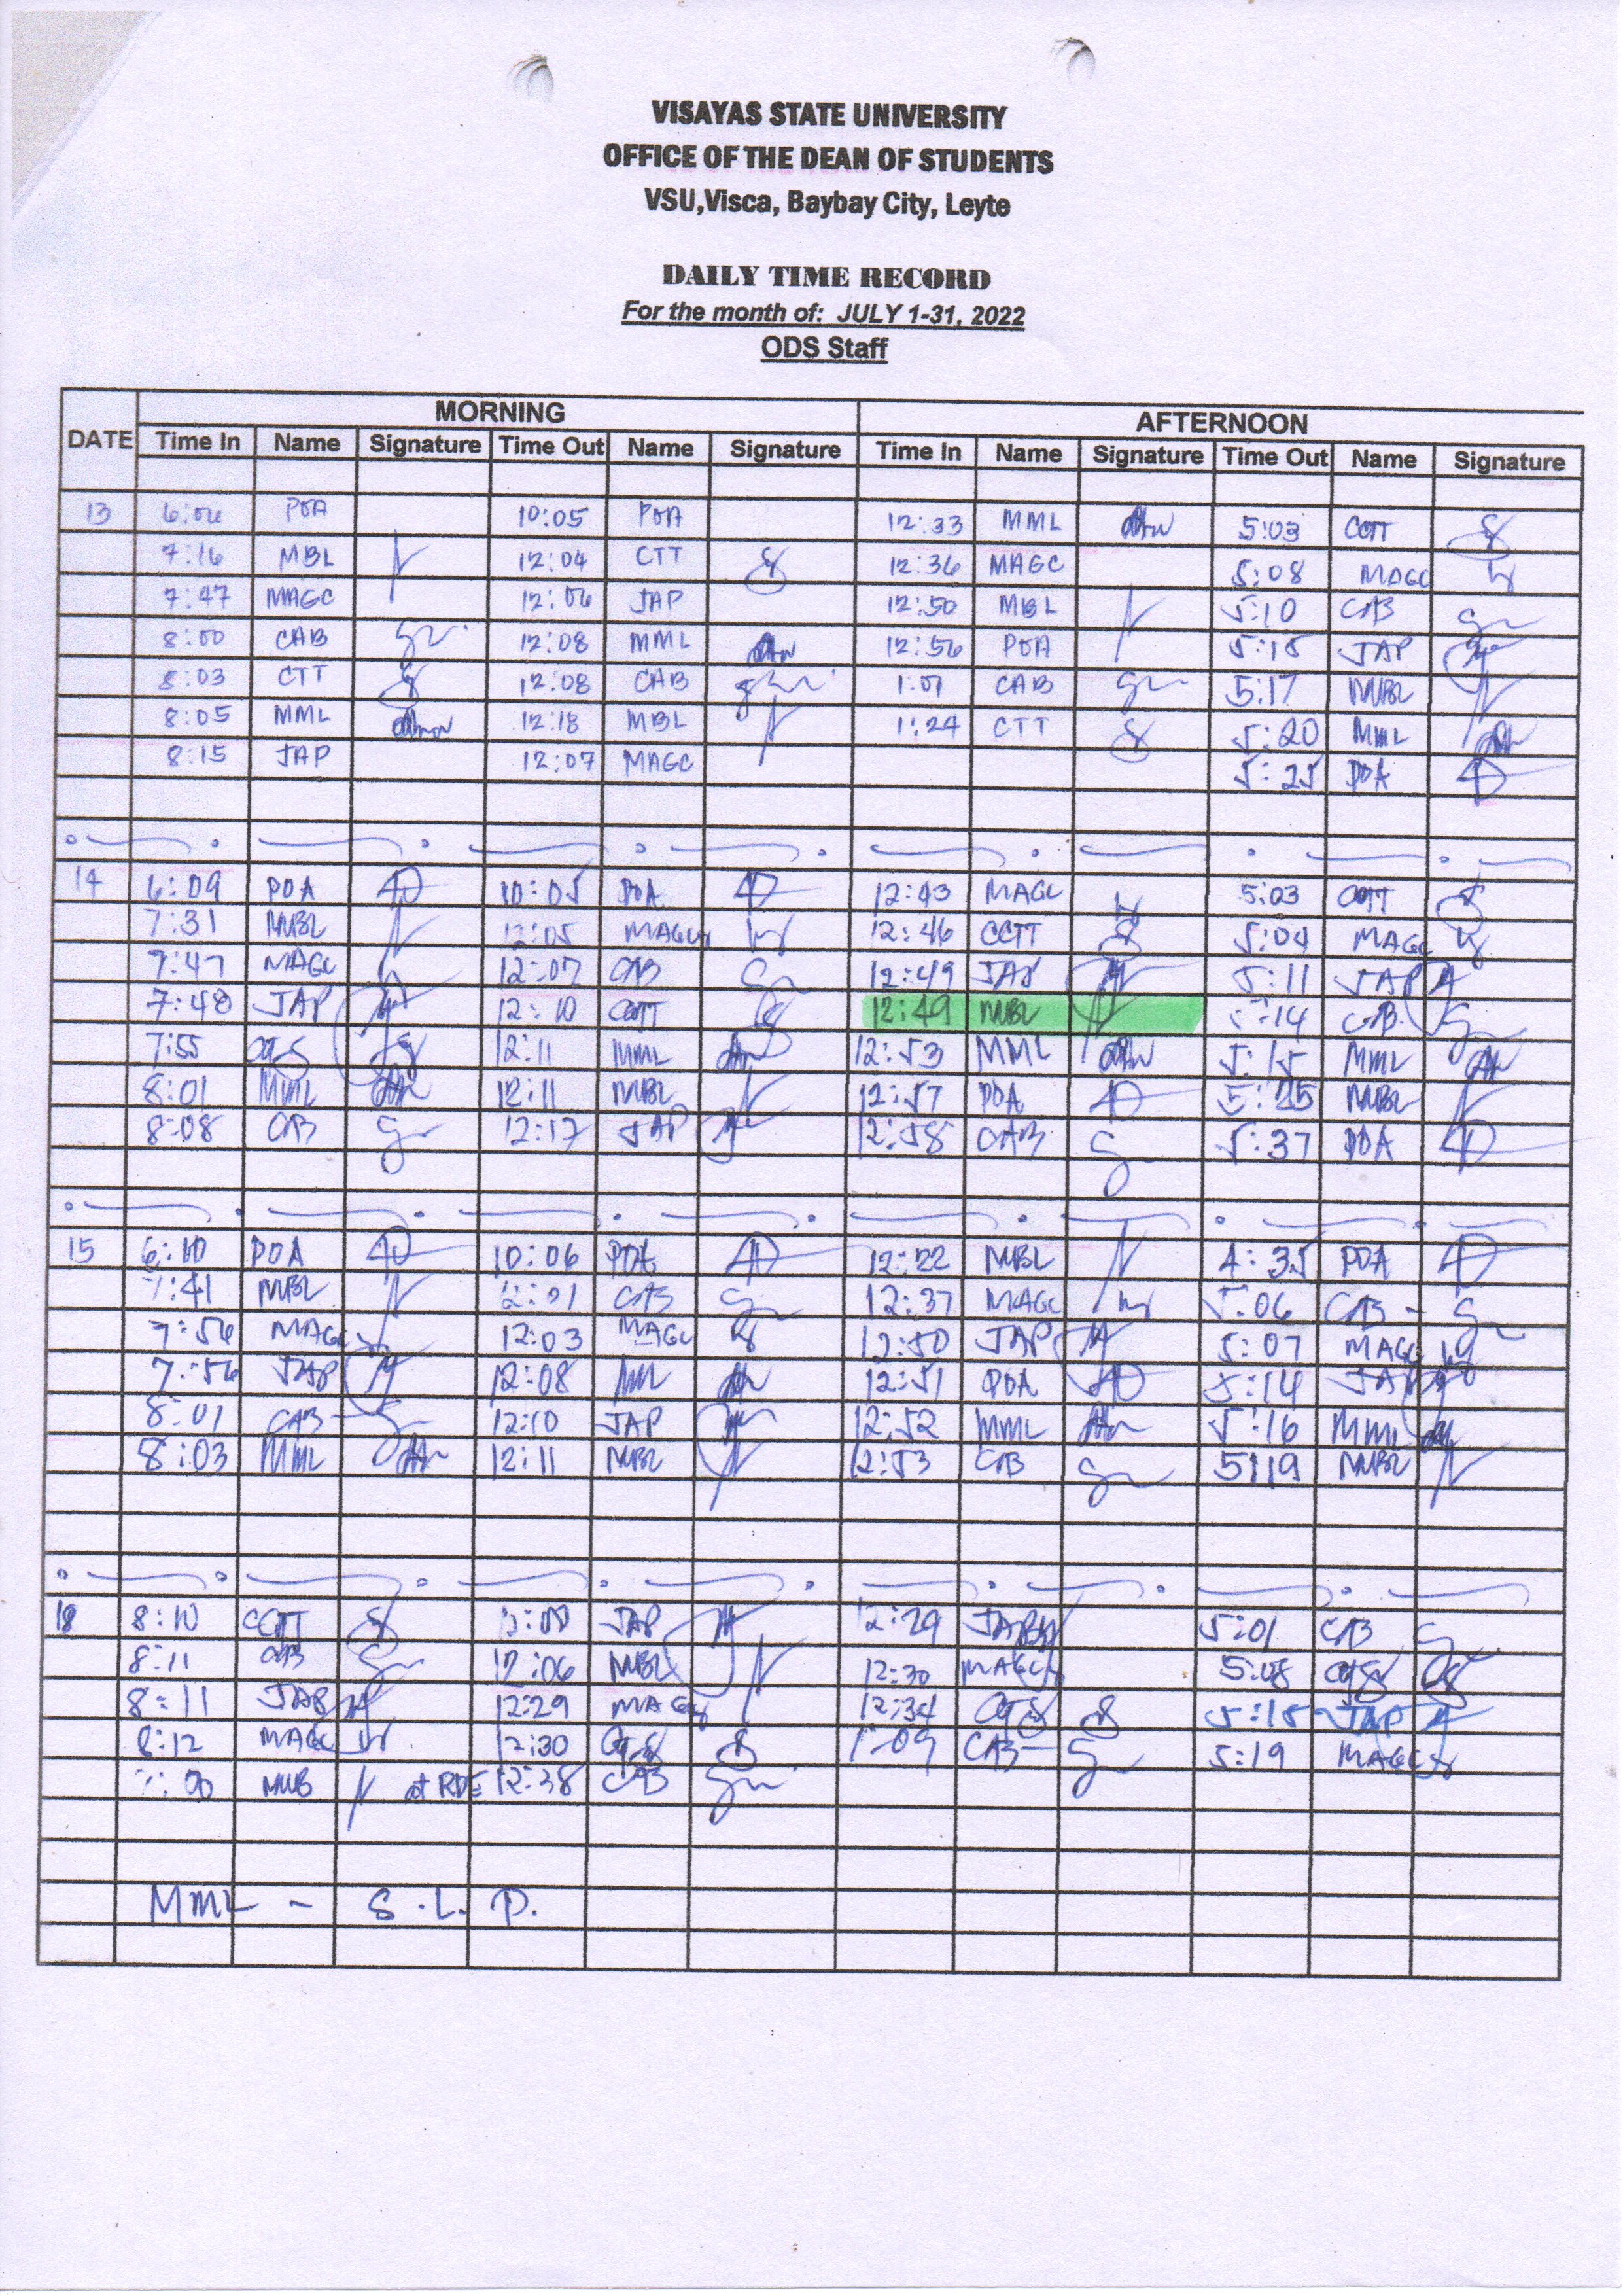 VISAYAS STATE UNIVERSITY
OFFICE OF THE DEAN OF STUDENTS
VSU,Visca, Baybay City, Leyte
DAILY TIME RECORD
For the month of: JULY 1-31, 2022
ODS Staff
DATE MORNING AFTERNOON
Time In Name Signature Time Out Name Signature Time In Name Signature Time Out Name Signature
13 POA 10:05 POA 12:33 MML 5:03
7:16 MBL 12:04 CTT 12:36 MAGC 5:08 MAGC
7:47 MAGC 12:06 JAP 12:50 MBL 5:10 CAB
8:00 CAB 12:08 MML 12:56 POA 5:15 JAP
8:03 CTT 12:08 CAB 1:01 CAB 5:17 MBL
8:05 MML 12:18 MBL 1:24 CTT 5:20 MML
8:15 JAP 12:07 MAGC 5:25 POA
14 6:09 POA 10:05 POA 12:43 MAGC 5:03
7:31 MBL 12:05 MAGC 12:46 CCTT 5:04 MAGC
7:47 MAGC 12:07 CAB 12:49 JAP 5:11 JAP
7:48 JAP 12:10 12:49 MBL 5:14 CAB
7:55 12:11 MML 12:53 MML 5:15 MML
8:01 MML 12:11 MBL 12:57 POA 5:25 MBL
8:08 CAB 12:17 JAP 12:58 CAB 5:37 POA
15 6:10 POA 10:06 POA 12:22 MBL 4:35 POA
7:41 MBL 12:01 CAB 12:37 MAGC 5:06 CAB
7:56 MAGC 12:03 MAGC 12:50 JAP 5:07 MAGC
7:56 JAP 12:08 12:51 POA 5:14 JAP
8:01 CAB 12:10 JAP 12:52 MML 5:16 MML
8:03 MML 12:11 MBL 12:53 CAB 5:19 MBL
18 8:10 JAP 12:29 JAP 5:01 CAB
8:11 CAB 12:06 MBL 12:30 MAGC 5:08
8:11 JAP 12:29 MAGC 12:34 5:15 JAP
8:12 MAGC 12:30 1:09 CAB 5:19 MAGC
at RDE 12:38 CAB
MML - S.L.P.